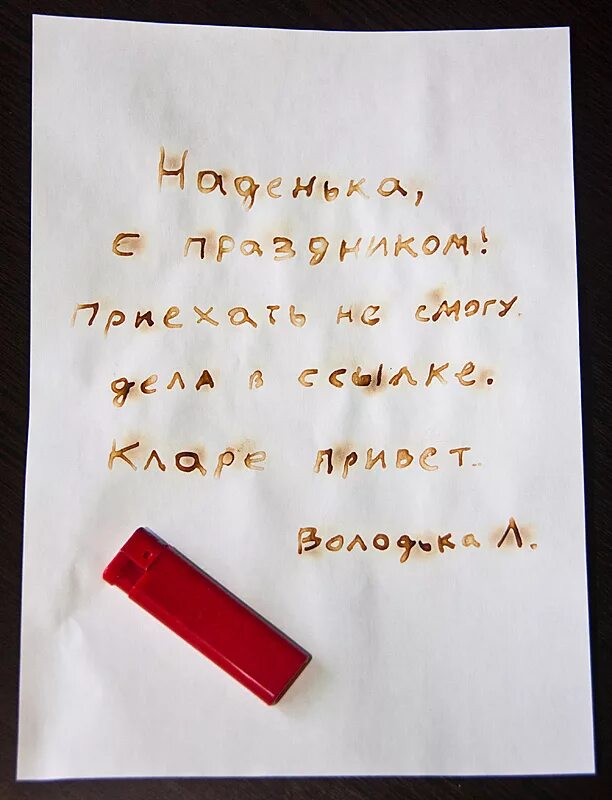 Наденька,
с праздником!
Приехать не смогу.
дела в ссылке.
Кларе привет.
Володька Л.